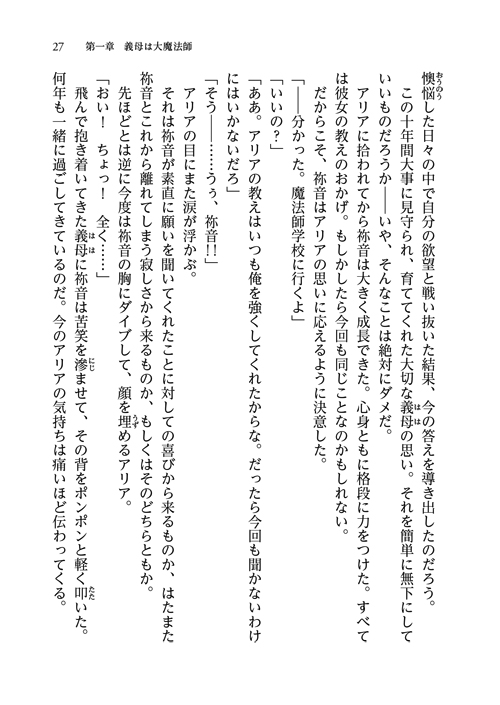 27　第一章　義母は大魔法師
懊悩した日々の中で自分の欲望と戦い抜いた結果、今の答えを導き出したのだろう。
この十年間大事に見守られ、育ててくれた大切な義母の思い。それを簡単に無下にして
いいものだろうか――いや、そんなことは絶対にダメだ。
アリアに拾われてから祢音は大きく成長できた。心身ともに格段に力をつけた。すべて
は彼女の教えのおかげ。もしかしたら今回も同じことなのかもしれない。
だからこそ、祢音はアリアの思いに応えるように決意した。
「――分かった。魔法師学校に行くよ」
「いいの？」
「ああ。アリアの教えはいつも俺を強くしてくれたからな。だったら今回も聞かないわけ
にはいかないだろ」
「そう――……うぅ、祢音!!」
アリアの目にまた涙が浮かぶ。
それは祢音が素直に願いを聞いてくれたことに対しての喜びから来るものか、はたまた
祢音とこれから離れてしまう寂しさから来るものか、もしくはそのどちらともか。
先ほどとは逆に今度は祢音の胸にダイブして、顔を埋めるアリア。
「おい！　ちょっ！　全く……」
飛んで抱き着いてきた義母に祢音は苦笑を滲ませて、その背をポンポンと軽く叩いた。
何年も一緒に過ごしてきているのだ。今のアリアの気持ちは痛いほど伝わってくる。